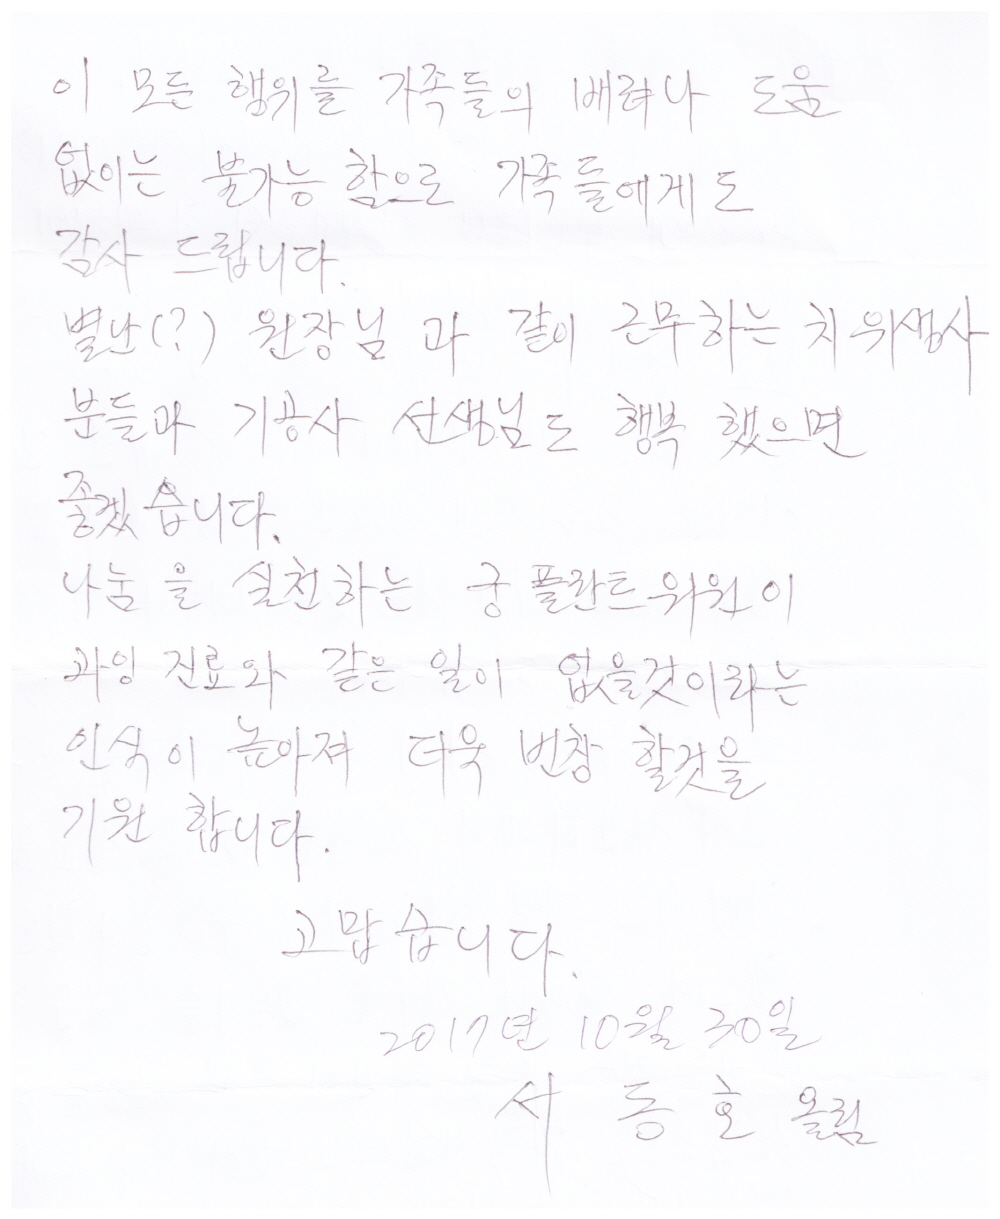 이 모든 행위를 가족들의 배려나 도움
없이는 불가능 함으로 가족들에게도
감사 드립니다.
별난(?) 원장님 과 같이 근무하는 치위생사
분들과 기공사 선생님도 행복 했으면
좋겠습니다.
나눔을 실천하는 궁플란트위원이
과잉 진료와 같은 일이 없을것이라는
인식이 높아져 더욱 번창 할것을
기원 합니다.
고맙습니다.
2017년 10월 30일
서동호 올림